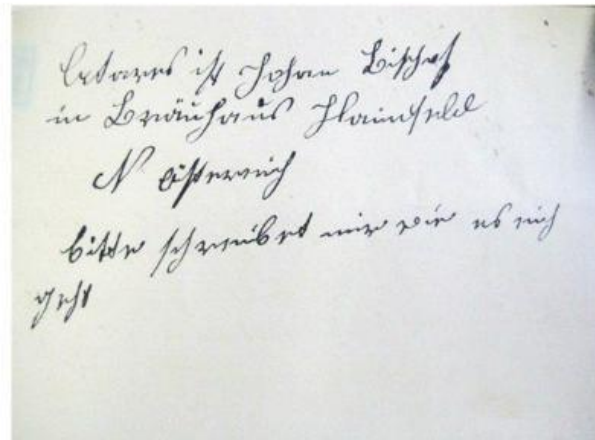 Adares ist Johan Bischof
in Bräuhaus Hainfeld
N Östereich
bitte schreibet mir wie es eich
geht